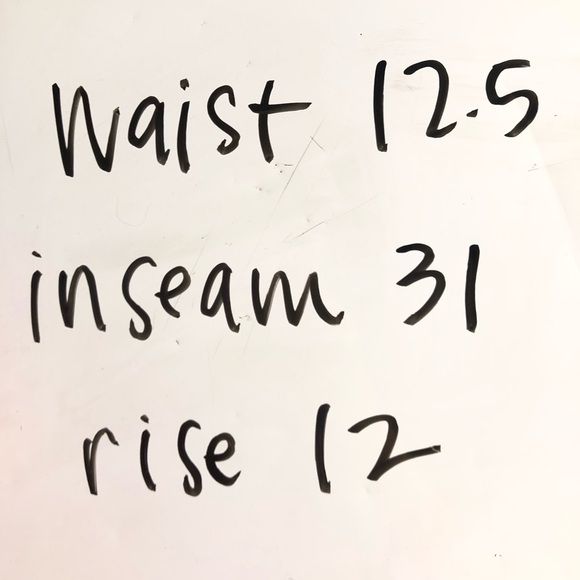 waist 12.5
inseam 31
rise 12